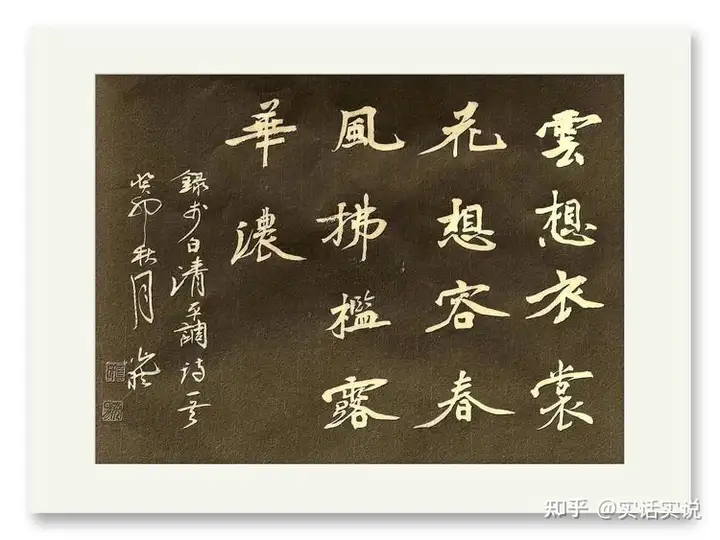 雲想衣裳
花想容春
風拂檻露
華濃
錄李白清平調詩
癸卯秋月
知乎 @实话实说